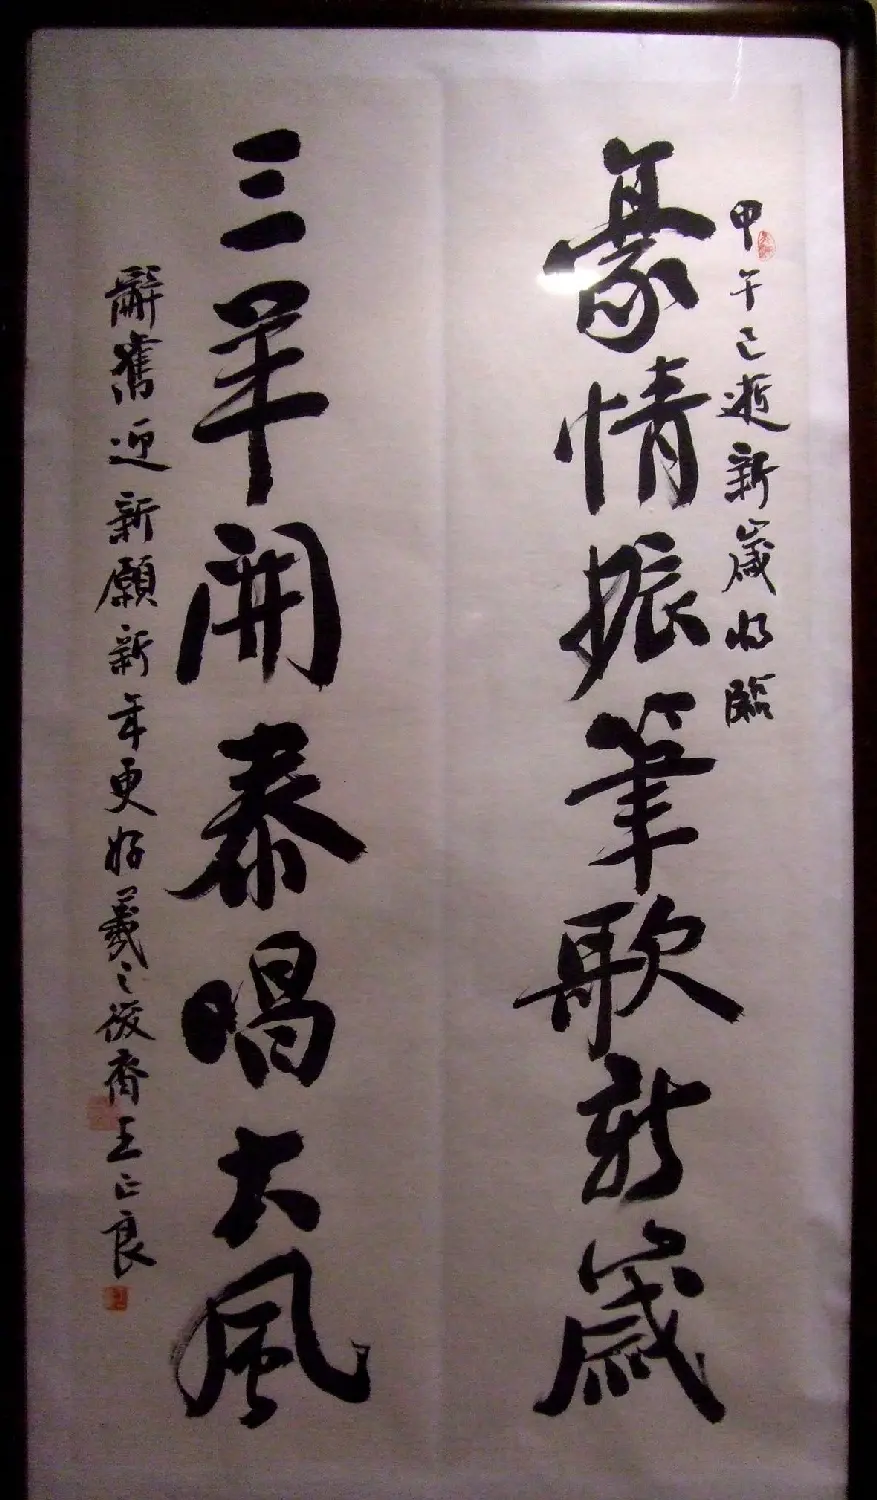 甲午已逝新歲将臨
豪情振筆歌新歲
三羊開泰唱大風
辭舊迎新願新年更好羲之後裔王正良